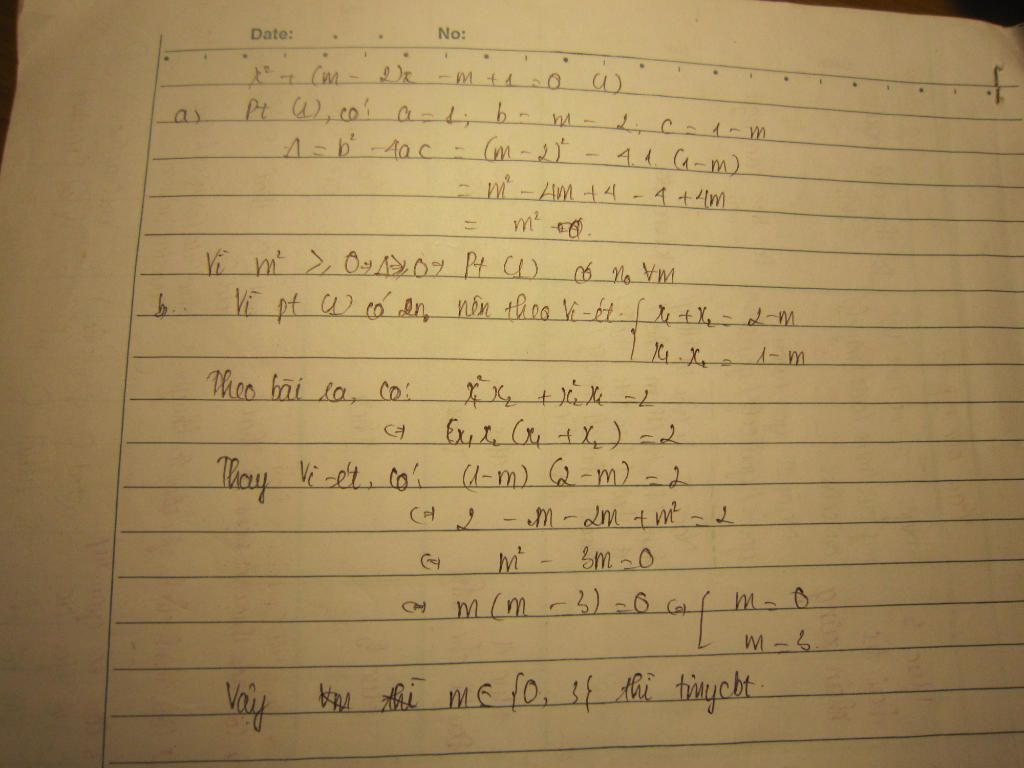 Date: No:
x² + (m - 2)x - m + 1 = 0 (1)
a) Pt (1), có: a = 1; b = m - 2; c = 1 - m
Δ = b² - 4ac = (m-2)² - 4.1.(1-m)
= m² - 4m + 4 - 4 + 4m
= m²
Vì m² ≥ 0 → Δ ≥ 0 → Pt (1) có n₀ ∀m
b. Vì pt (1) có 2n₀ nên theo Vi-ét { x₁ + x₂ = 2-m
x₁ . x₂ = 1-m
Theo bài ra, có: x₁²x₂ + x₂²x₁ = 2
⇔ x₁x₂ (x₁ + x₂) = 2
Thay Vi-ét, có: (1-m) (2-m) = 2
⇔ 2 - m - 2m + m² = 2
⇔ m² - 3m = 0
⇔ m(m - 3) = 0 ⇔ [ m = 0
m = 3.
Vậy m ∈ {0, 3} thì tmycbt.